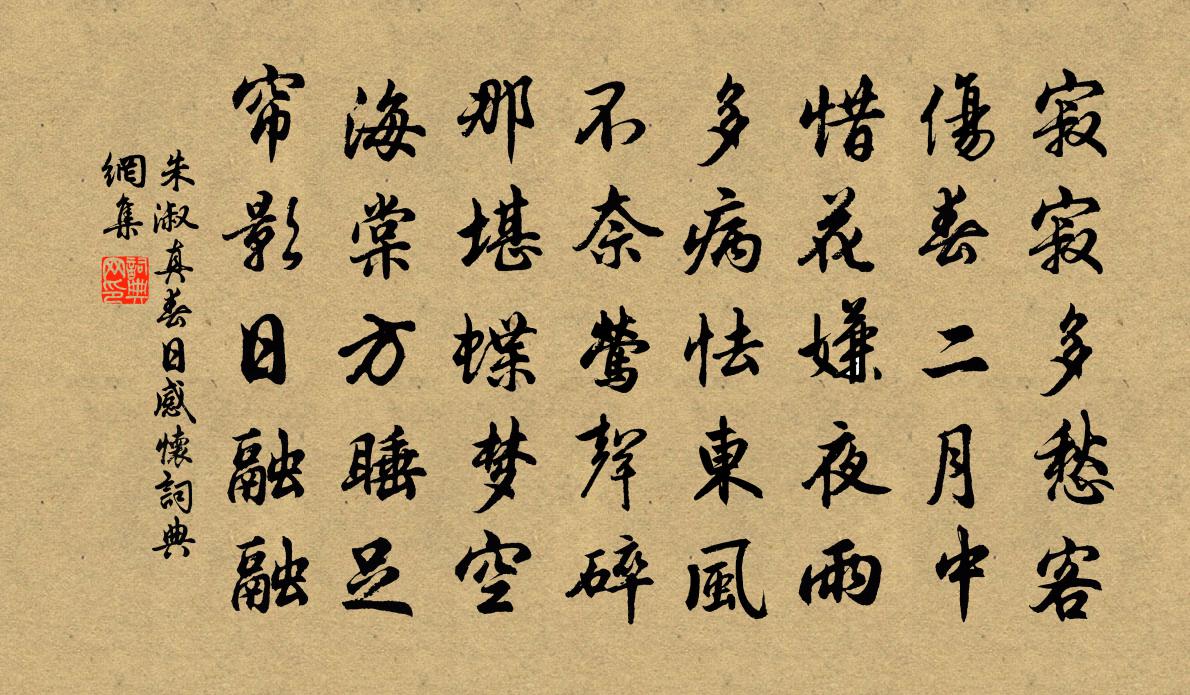 寂寂多愁客
傷春二月中
惜花嫌夜雨
多病怯東風
不奈鶯聲碎
那堪蝶梦空
海棠方睡足
帘影日融融
朱淑真春日感懷詞典
網集
詞典
网印